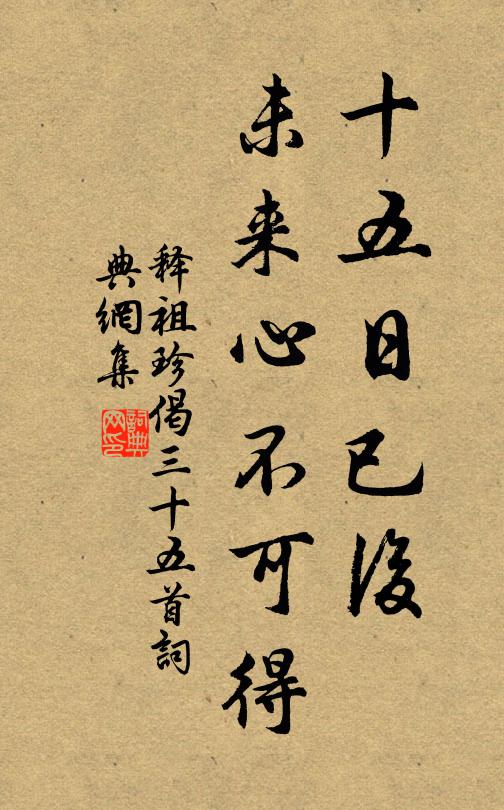 十五日已後
未来心不可得
释祖珍偈三十五首詞
典網集
詞典网印